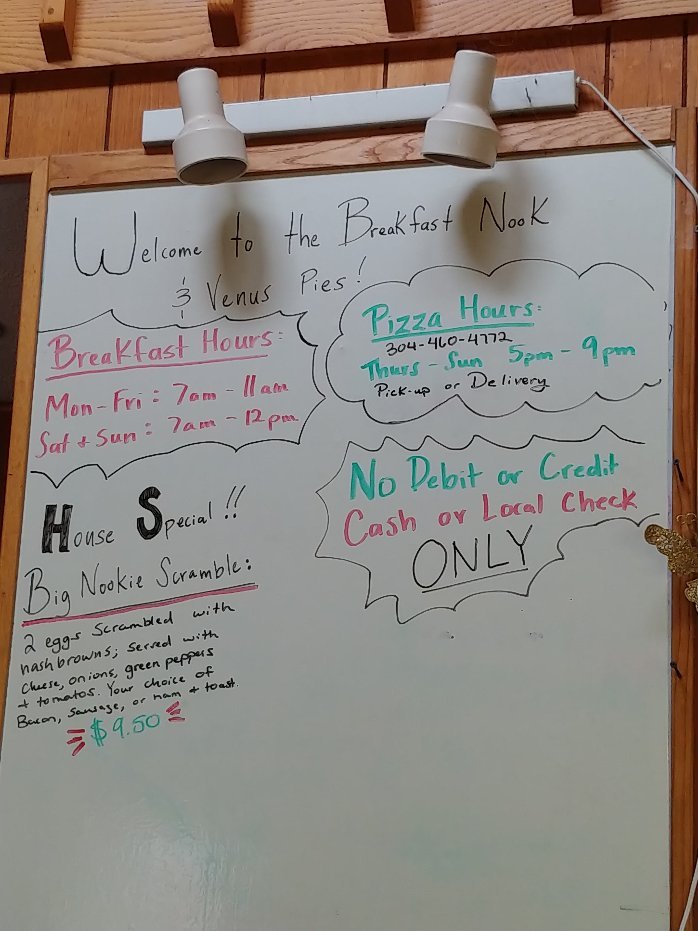 Welcome to the Breakfast Nook
& Venus Pies!
Breakfast Hours:
Mon-Fri: 7am-11am
Sat + Sun: 7am-12pm
Pizza Hours:
304-460-4772
Thurs-Sun 5pm-9pm
Pick-up or Delivery
No Debit or Credit
Cash or Local Check
ONLY
House Special!!
Big Nookie Scramble:
2 eggs scrambled with
hashbrowns; served with
cheese, onions, green peppers
+ tomatos. Your choice of
Bacon, Sausage, or ham + toast.
$9.50